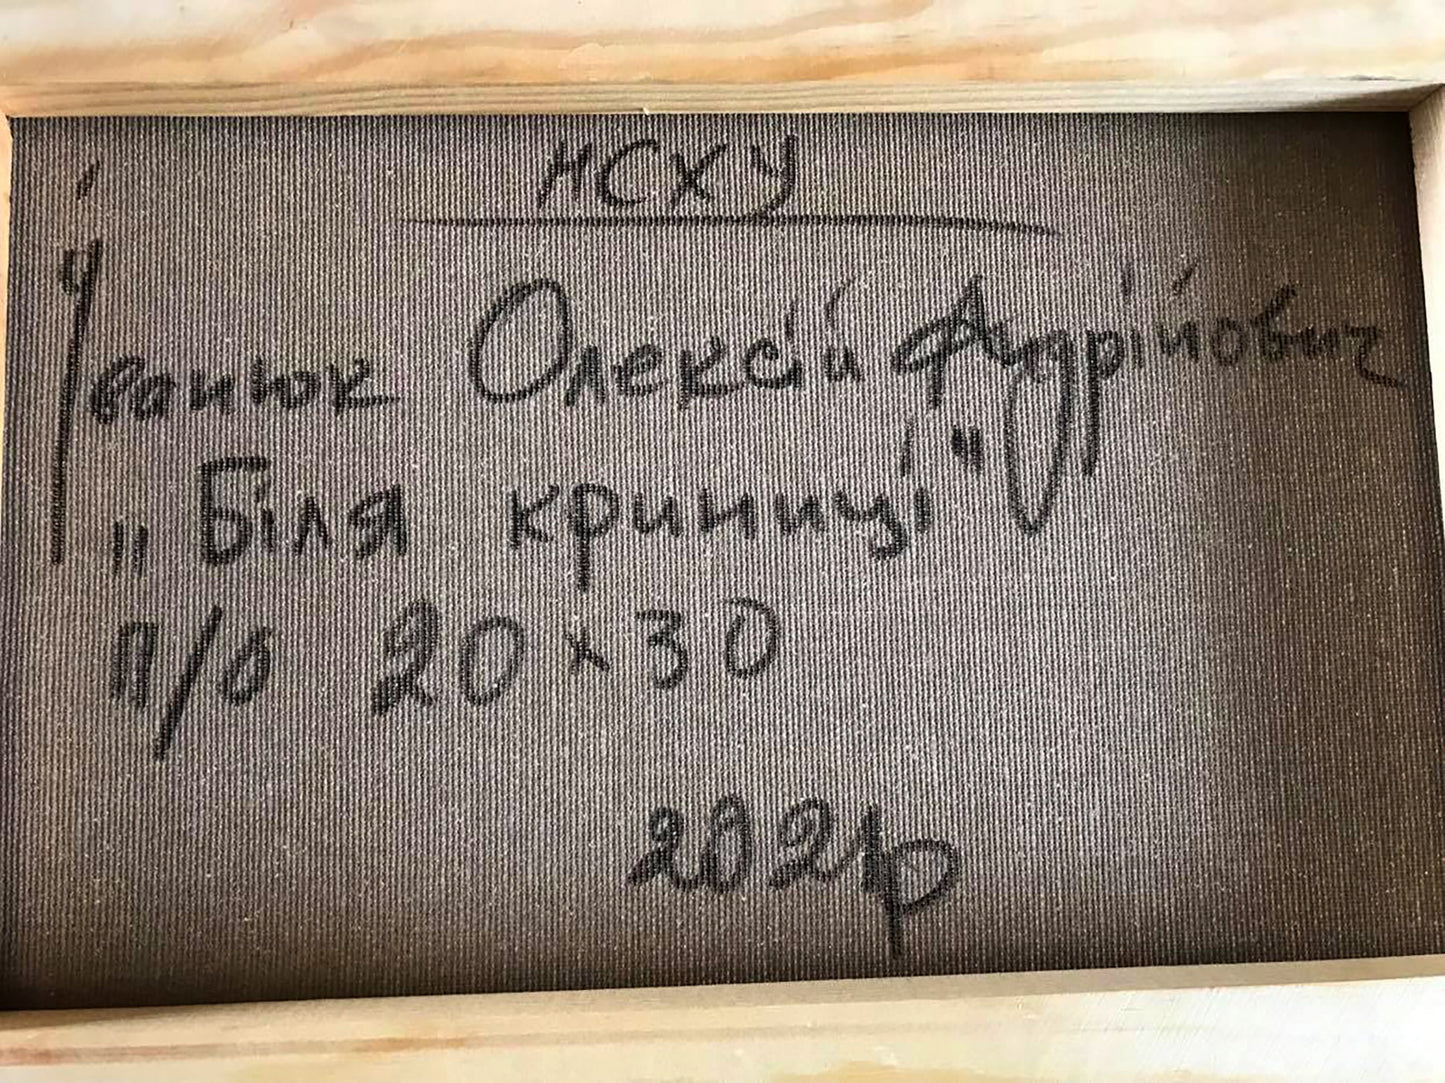 НСХУ
Іванюк Олексій Андрійович
"Біля криниці"
п/о 20х30
2021р